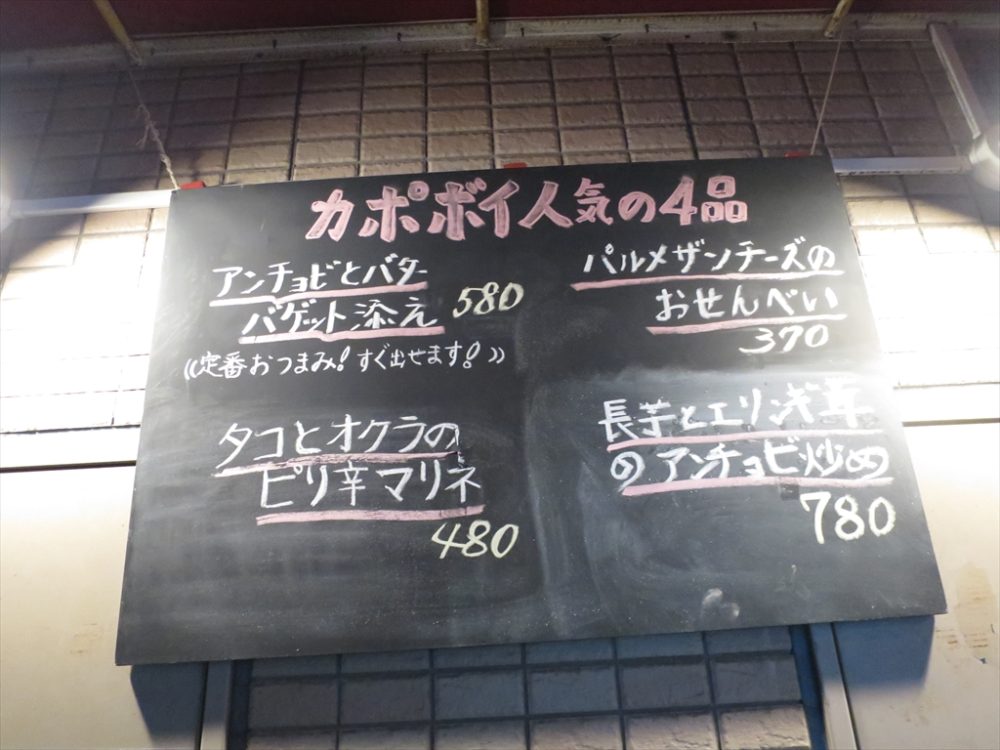 カポボイ人気の4品
アンチョビとバター
バゲット添え 580
((定番おつまみ!すぐ出せます!))
タコとオクラの
ピリ辛マリネ
480
パルメザンチーズの
おせんべい
370
長芋とエリンギ
のアンチョビ炒め
780